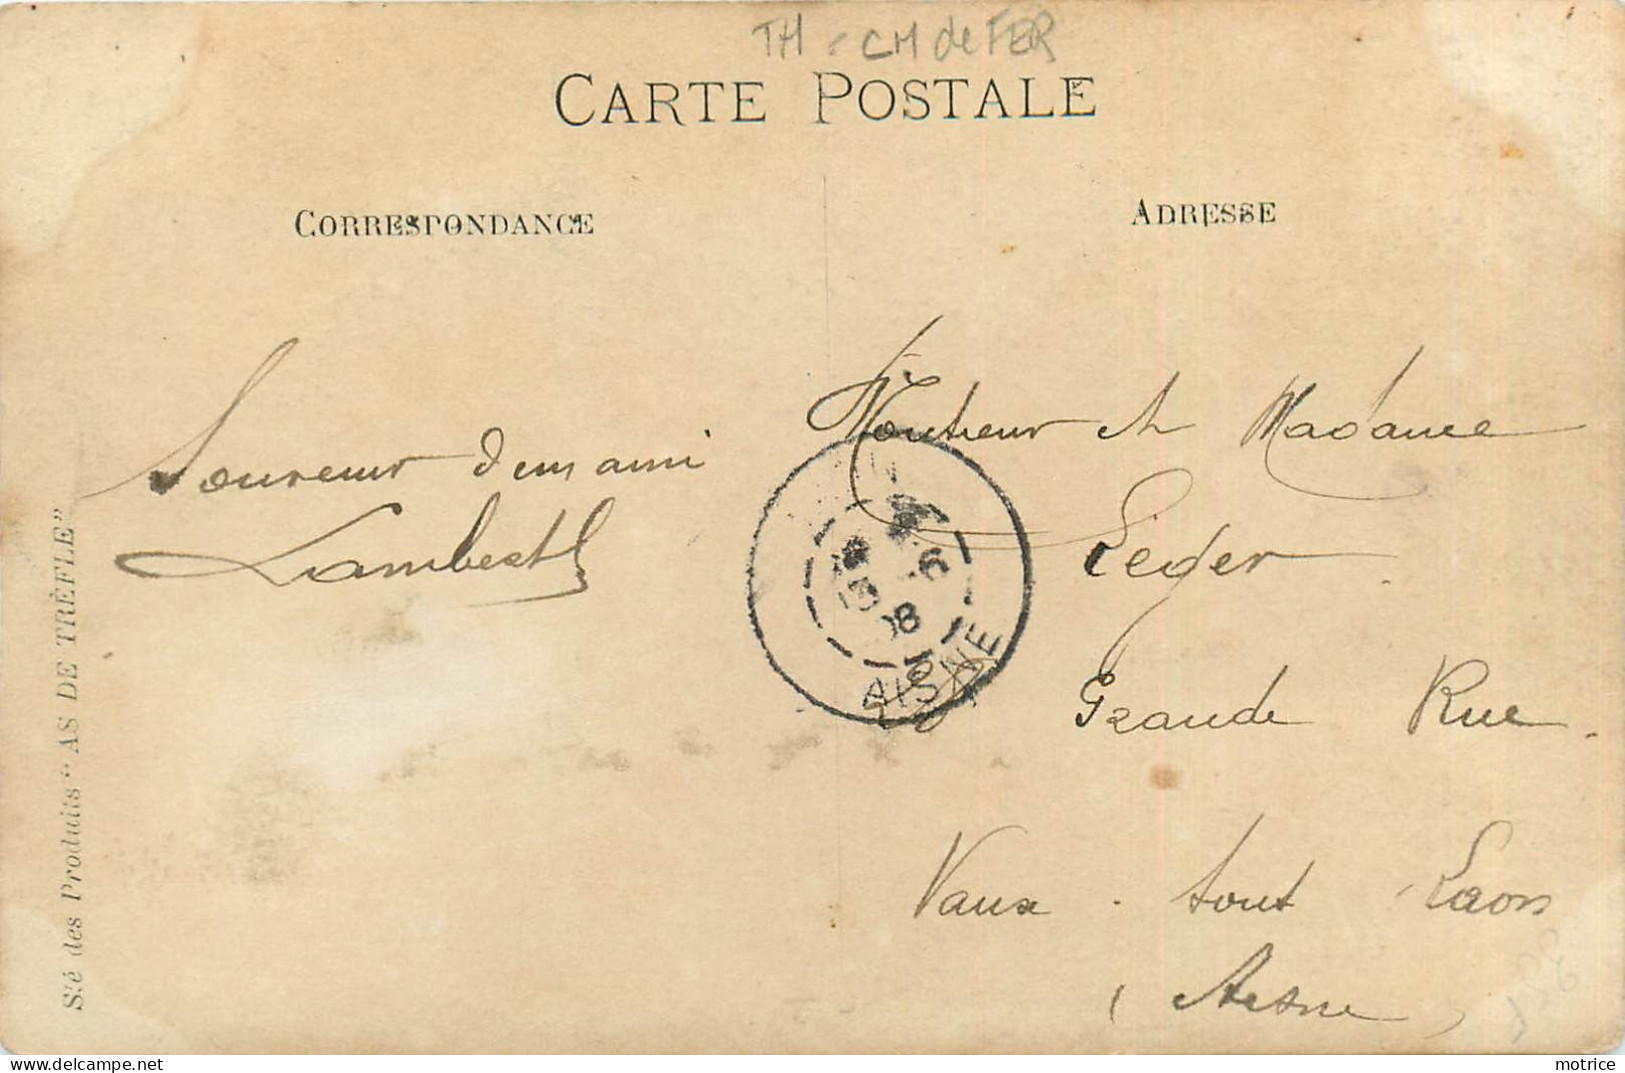 TH - CH de FER
CARTE POSTALE
CORRESPONDANCE
ADRESSE
Souvenir d'un ami
Lambert
Monsieur et Madame
Leger
Grande Rue
Vaux. sous Laon
(Aisne)
AISNE
6
08
Sté des Produits "AS DE TRÈFLE"
delcampe.net
motrice